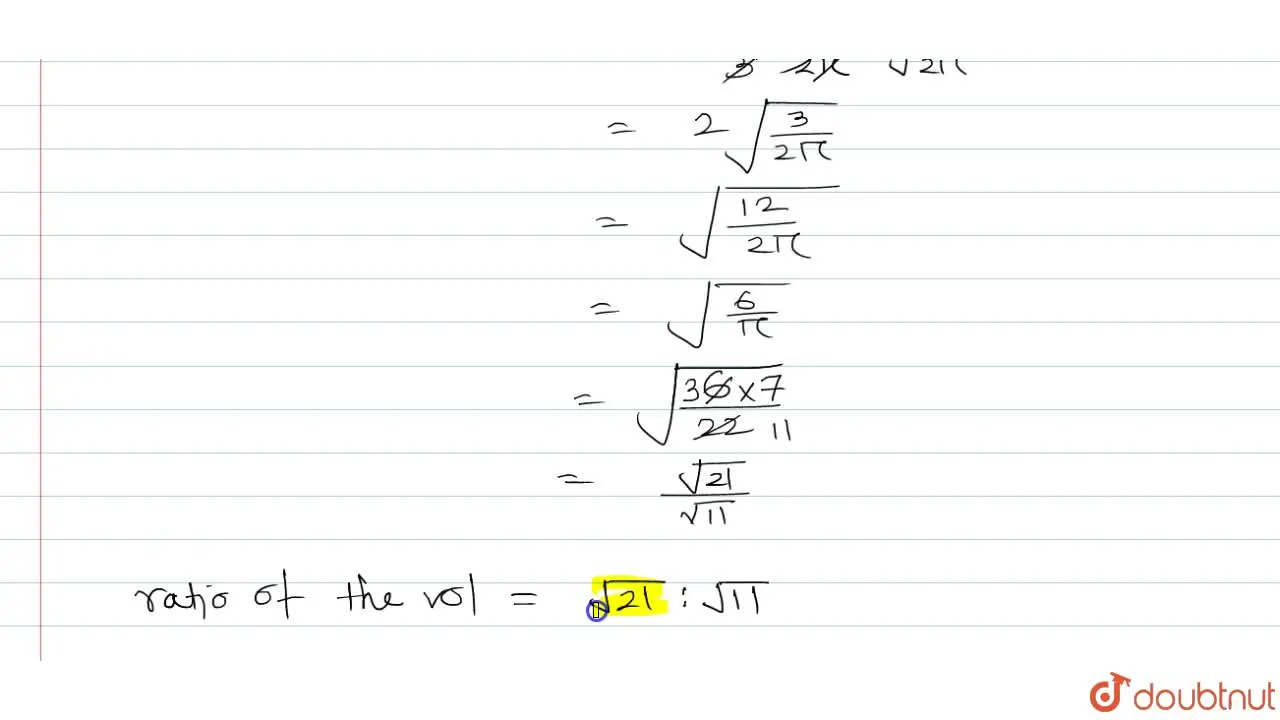 3 2π √2π
= 2 √3/2π
= √12/2π
= √6/π
= √36×7/22 11
= √21/√11
ratio of the vol = √21 : √11
doubtnut